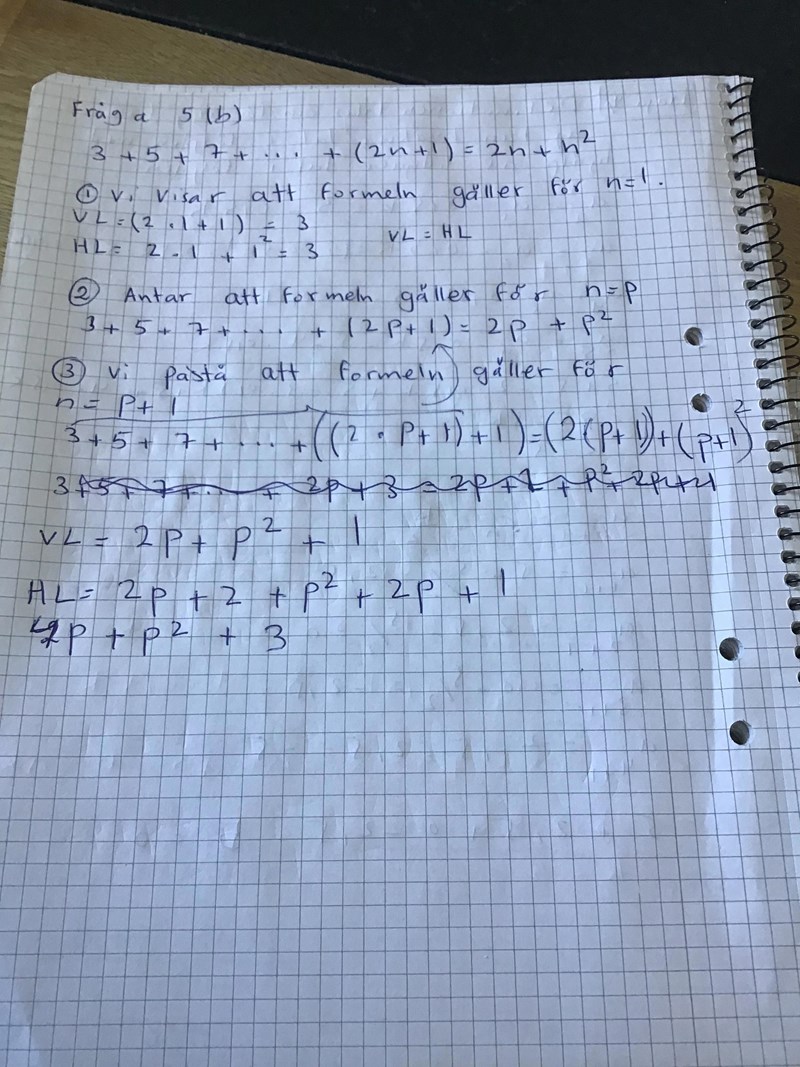 Fråga 5(b)
3 + 5 + 7 + ... + (2n+1) = 2n + n²
① Vi visar att formeln gäller för n=1.
VL = (2 · 1 + 1) = 3
HL = 2 · 1 + 1² = 3 VL = HL
② Antar att formeln gäller för n=p
3 + 5 + 7 + ... + (2p+1) = 2p + p²
③ Vi påstå att formeln gäller för
n = p + 1
3 + 5 + 7 + ... + ((2 · p+1)+1) = (2(p+1)) + (p+1)²
3+5+7+...+ 2p + 3 = 2p + 2 + p² + 2p + 1
VL = 2p + p² + 1
HL = 2p + 2 + p² + 2p + 1
4p + p² + 3